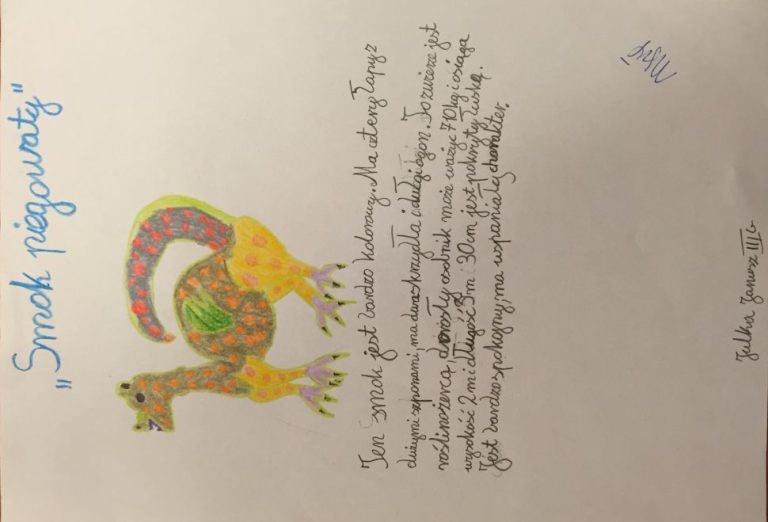 „Smok piegowaty"
Ten smok jest bardzo kolorowy. Ma cztery łapy z
dużymi szponami, ma dwa skrzydła i długi ogon. To zwierze jest
roślinożercą, dorosły osobnik może ważyć 710kg i osiąga
wysokość 2 m i długość 3 m i 30 cm, jest pokryty łuską.
Jest bardzo spokojny, ma wspaniały charakter.
Julka Janusz III c